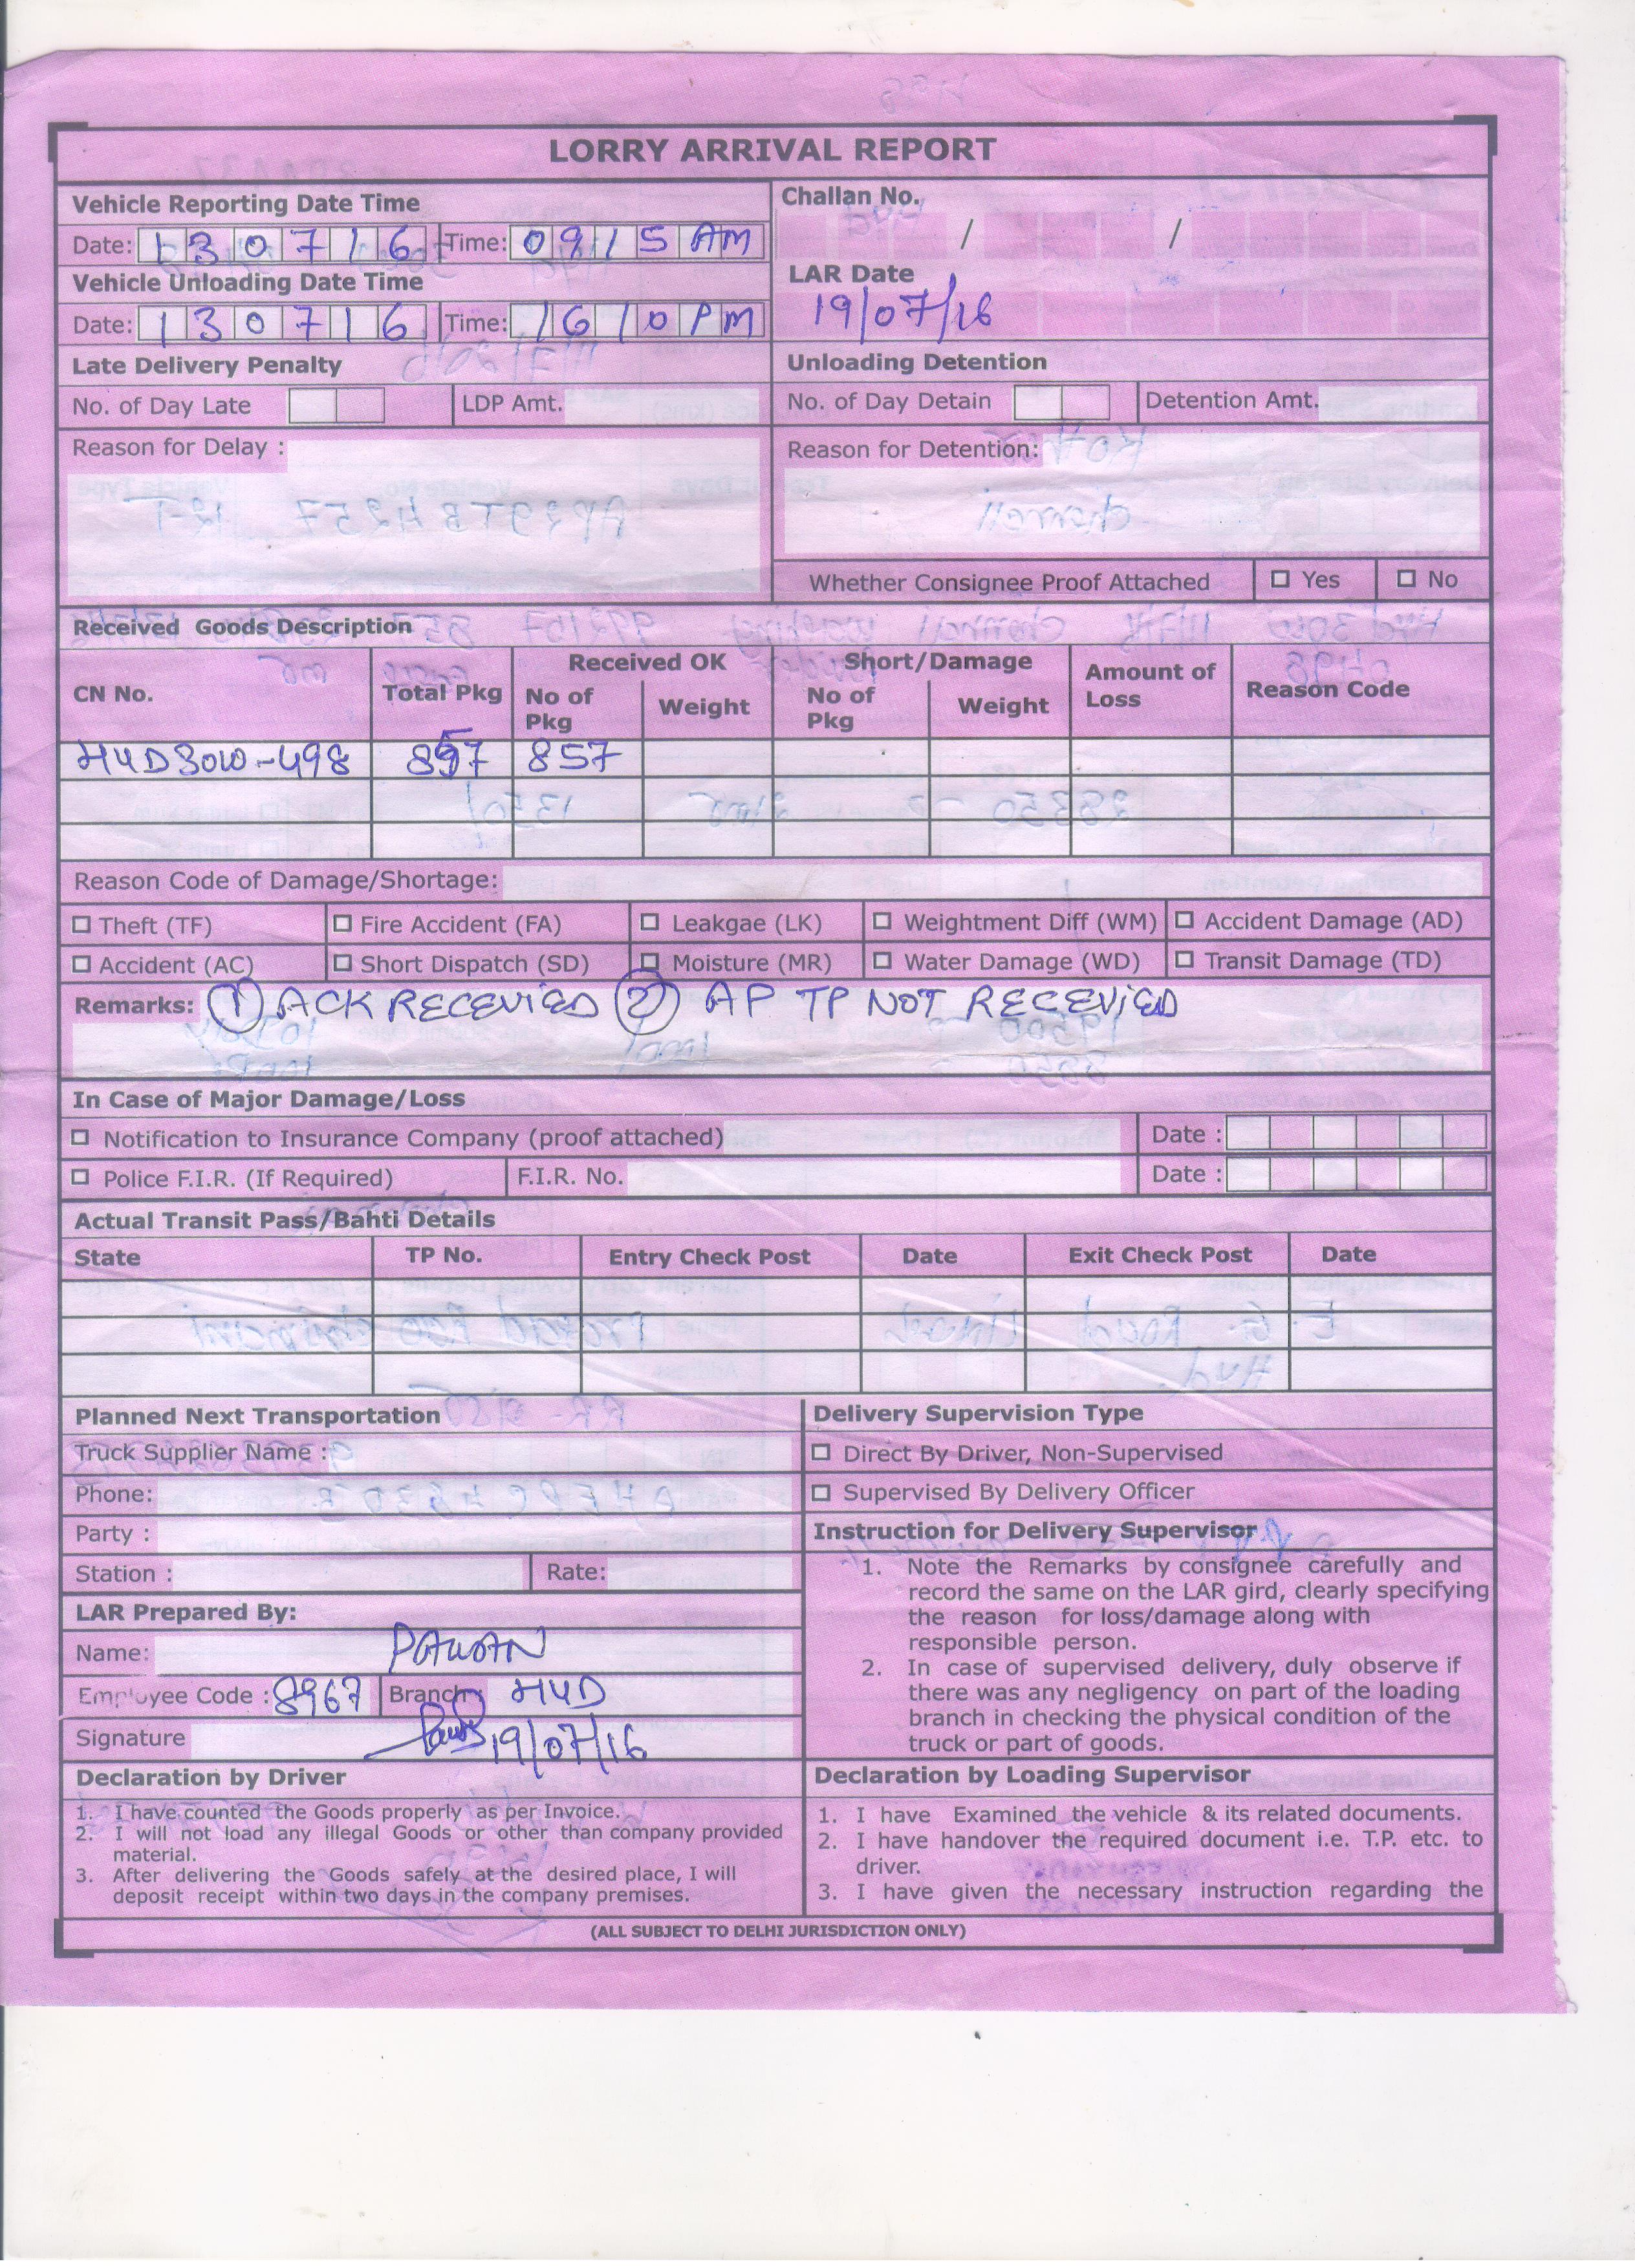 LORRY ARRIVAL REPORT
Vehicle Reporting Date Time
Date: 130716 Time: 0915 AM
Vehicle Unloading Date Time
Date: 130716 Time: 1610 PM
Challan No.
/ /
LAR Date
19/07/16
Late Delivery Penalty
No. of Day Late LDP Amt.
Reason for Delay :
Unloading Detention
No. of Day Detain Detention Amt.
Reason for Detention:
Whether Consignee Proof Attached Yes No
Received Goods Description
CN No. Total Pkg Received OK Short/Damage Amount of Loss Reason Code
No of Pkg Weight No of Pkg Weight
HYD3010-498 857 857
Reason Code of Damage/Shortage:
Theft (TF) Fire Accident (FA) Leakgae (LK) Weightment Diff (WM) Accident Damage (AD)
Accident (AC) Short Dispatch (SD) Moisture (MR) Water Damage (WD) Transit Damage (TD)
Remarks: 1 ACK RECEVIED 2 AP TP NOT RECEVIED
In Case of Major Damage/Loss
Notification to Insurance Company (proof attached) Date :
Police F.I.R. (If Required) F.I.R. No. Date :
Actual Transit Pass/Bahti Details
State TP No. Entry Check Post Date Exit Check Post Date
Planned Next Transportation
Truck Supplier Name :
Phone:
Party :
Station : Rate:
LAR Prepared By:
Name: PAWAN
Employee Code : 8967 Branch HYD
Signature 19/07/16
Delivery Supervision Type
Direct By Driver, Non-Supervised
Supervised By Delivery Officer
Instruction for Delivery Supervisor
1. Note the Remarks by consignee carefully and
record the same on the LAR gird, clearly specifying
the reason for loss/damage along with
responsible person.
2. In case of supervised delivery, duly observe if
there was any negligency on part of the loading
branch in checking the physical condition of the
truck or part of goods.
Declaration by Driver
1. I have counted the Goods properly as per Invoice.
2. I will not load any illegal Goods or other than company provided
material.
3. After delivering the Goods safely at the desired place, I will
deposit receipt within two days in the company premises.
Declaration by Loading Supervisor
1. I have Examined the vehicle & its related documents.
2. I have handover the required document i.e. T.P. etc. to
driver.
3. I have given the necessary instruction regarding the
(ALL SUBJECT TO DELHI JURISDICTION ONLY)